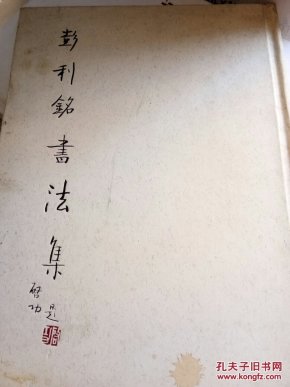 彭利銘書法集
啓功
題
孔夫子旧书网